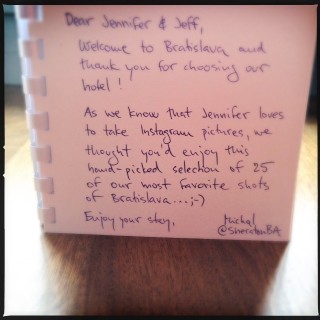 Dear Jennifer & Jeff,
Welcome to Bratislava and
thank you for choosing our
hotel!
As we know that Jennifer loves
to take Instagram pictures, we
thought you'd enjoy this
hand-picked selection of 25
of our most favorite shots
of Bratislava...;-)
Enjoy your stay,
Michal
@SheratonBA